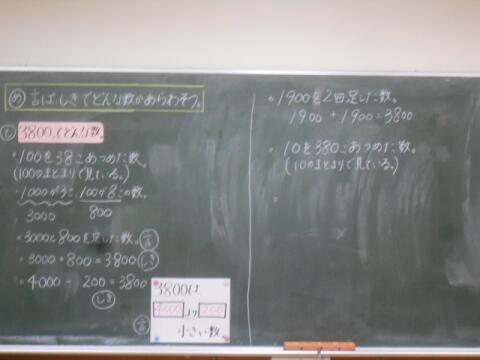 め 言ばしきでどんな数かあらわそう。
3800はどんな数。
・100を38こあつめた数。
(100のまとまりで見ている。)
・1000が3こ 100が8この数。
3000 800
・3000と800を足した数。言
・3000+800=3800 しき
・4000-200=3800
しき
言
3800は
4000より200
小さい数。
・1900を2回足した数。
1900+1900=3800
・10を380こあつめた数。
(10のまとまりで見ている。)